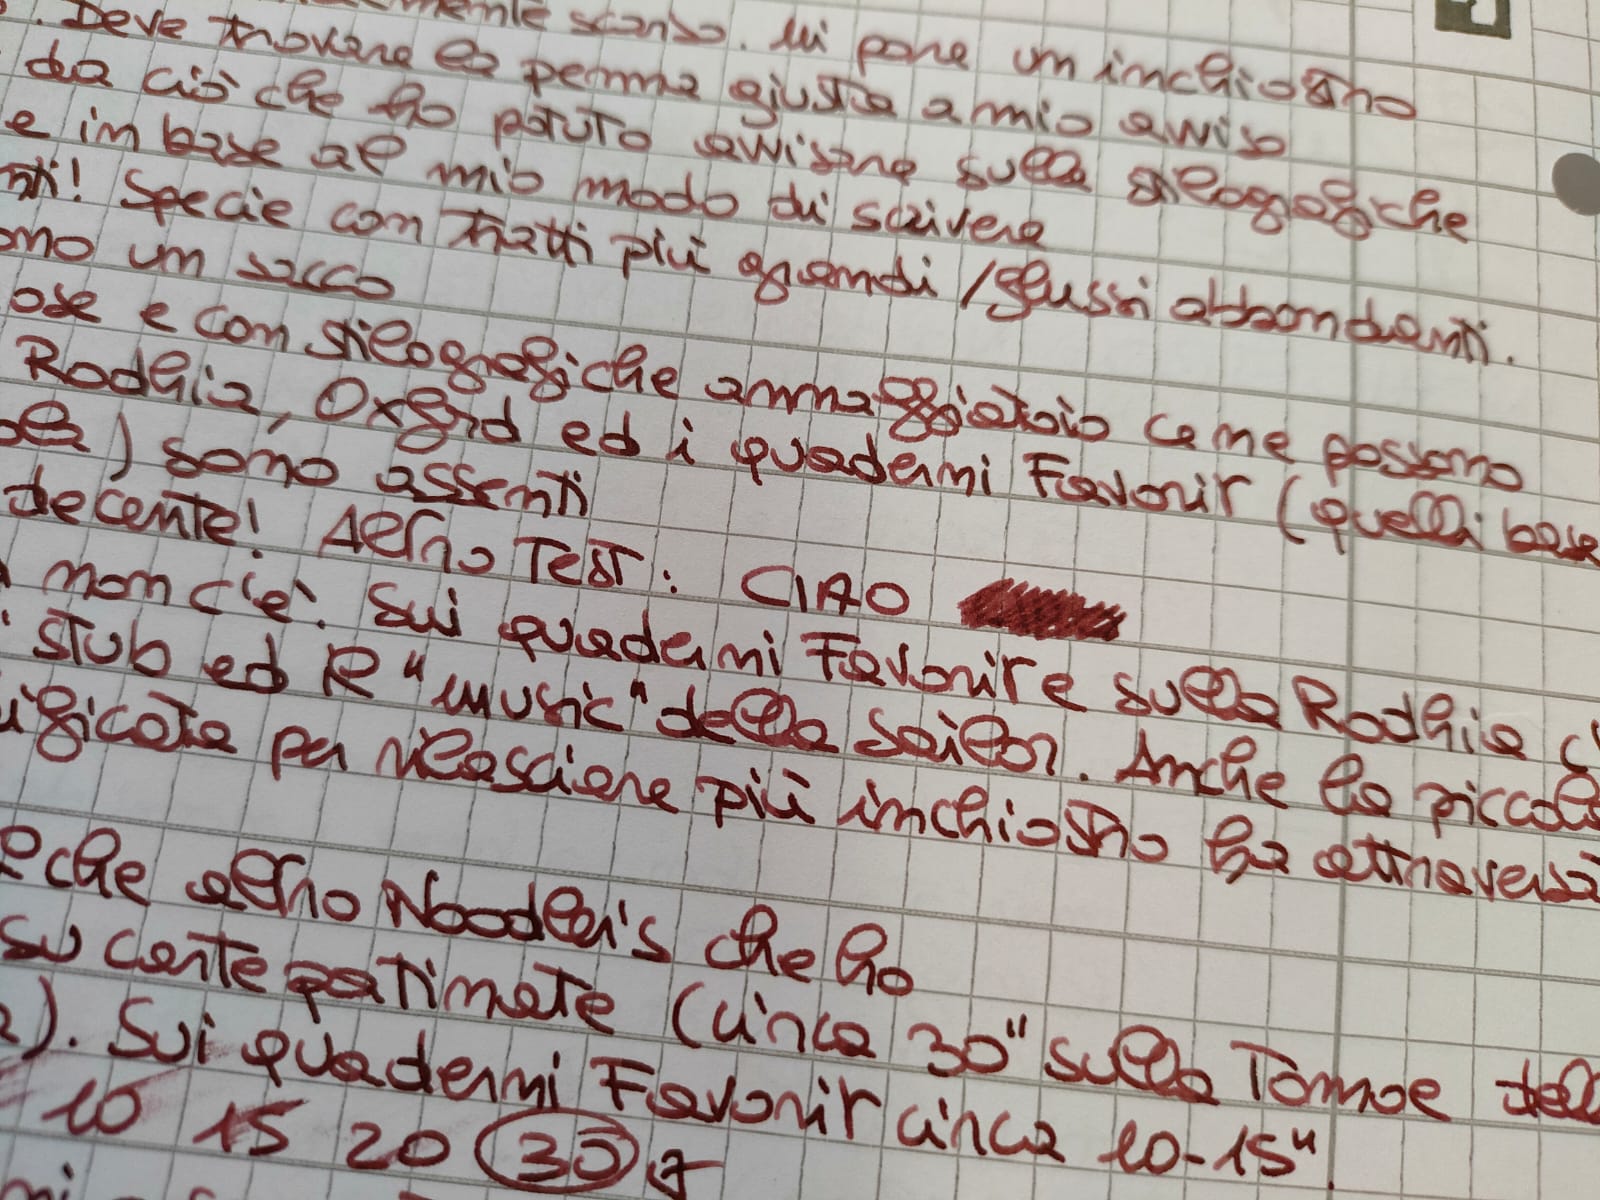 mente scarso. Mi pare un inchiostro
. Deve trovare la penna giusta a mio avviso
da ciò che ho potuto avvisare sulla stilografiche
e in base al mio modo di scrivere
nti! Specie con tratti più grandi / flussi abbondanti.
ono un sacco
ose e con stilografiche annaffiatoio ce ne possono
Rodhia, Oxford ed i quaderni Favorir (quelli base
) sono assenti
decente! Altro Test: CIAO
non c'è. Sui quaderni Favorire sulla Rodhia c'
stub ed il "music" della Sailor. Anche la piccola
ificata per rilasciare più inchiostro ha attraversa
che altro Noodler's che ho
su carte patinate (circa 30" sulla Tomoe del
). Sui quaderni Favorir circa 10-15".
10 15 20 30